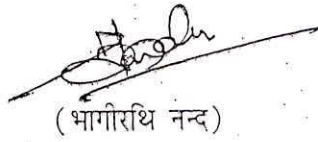 (भागीरथि नन्द)